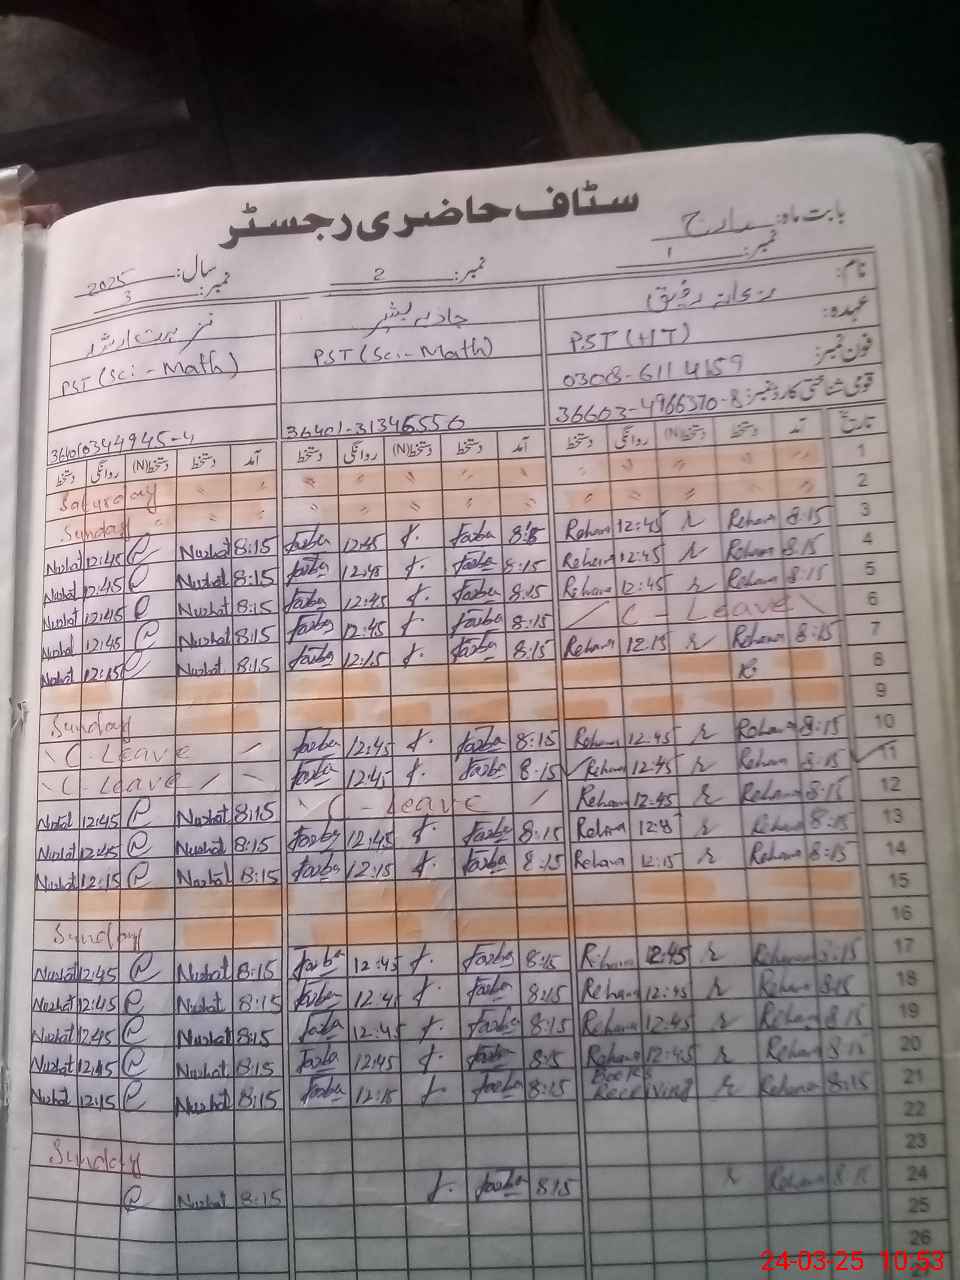 سٹاف حاضری رجسٹر
بابت ماہ: مارچ سال: 2025
نمبر: 1 نمبر: 2 نمبر: 3
نام: ریحانہ رفیق
عہدہ: PST (HT) PST (Sci-Math) PST (Sci-Math)
فون نمبر: 0308-6114159
قومی شناختی کارڈ نمبر: 36603-4966370-8 36401-3134655 6
تاریخ آمد دستخط دستخط(N) روانگی دستخط آمد دستخط دستخط(N) روانگی دستخط آمد دستخط دستخط(N) روانگی دستخط
1 〃 〃 〃 〃 〃 〃 〃 〃 〃 〃 〃 〃 Saturday
2 〃 〃 〃 〃 〃 〃 〃 〃 〃 〃 〃 〃 Sunday
3 8:15 Rehana r 12:45 Rehana 8:15 f. 12:45 8:15 Nuzhat 12:45 Nuzhat
4 8:15 Rehana r 12:45 Rehana 8:15 f. 12:45 8:15 Nuzhat 12:45 Nuzhat
5 8:15 Rehana r 12:45 Rehana 8:15 f. 12:45 8:15 Nuzhat 12:45 Nuzhat
6 C-Leave 8:15 f. 12:45 8:15 Nuzhat 12:45 Nuzhat
7 8:15 Rehana r 12:15 Rehana 8:15 f. 12:15 8:15 Nuzhat 12:15 Nuzhat
8
9 Sunday
10 8:15 Rehana r 12:45 Rehana 8:15 f. 12:45 C-Leave
11 8:15 Rehana r 12:45 Rehana 8:15 f. 12:45 C-Leave
12 8:15 Rehana r 12:45 Rehana C-Leave 8:15 Nuzhat 12:45
13 8:15 Rehana r Rehana 8:15 f. 12:45 8:15 Nuzhat 12:45 Nuzhat
14 8:15 Rehana r 12:15 Rehana 8:15 f. 12:15 8:15 Nuzhat 12:15 Nuzhat
15
16 Sunday
17 8:15 Rehana r 12:45 Rehana 8:15 f. 12:45 8:15 Nuzhat 12:45 Nuzhat
18 8:15 Rehana r 12:45 Rehana 8:15 f. 12:45 8:15 Nuzhat 12:45 Nuzhat
19 8:15 Rehana r 12:45 Rehana 8:15 f. 12:45 8:15 Nuzhat 12:45 Nuzhat
20 8:15 Rehana r 12:45 Rehana 8:15 f. 12:45 8:15 Nuzhat 12:45 Nuzhat
21 8:15 Rehana r Books Receiving 8:15 f 12:15 8:15 Nuzhat 12:15 Nuzhat
22
23 Sunday
24 8:15 Rehana r 8:15 f. 8:15 Nuzhat
25
26
24-03-25 10:53